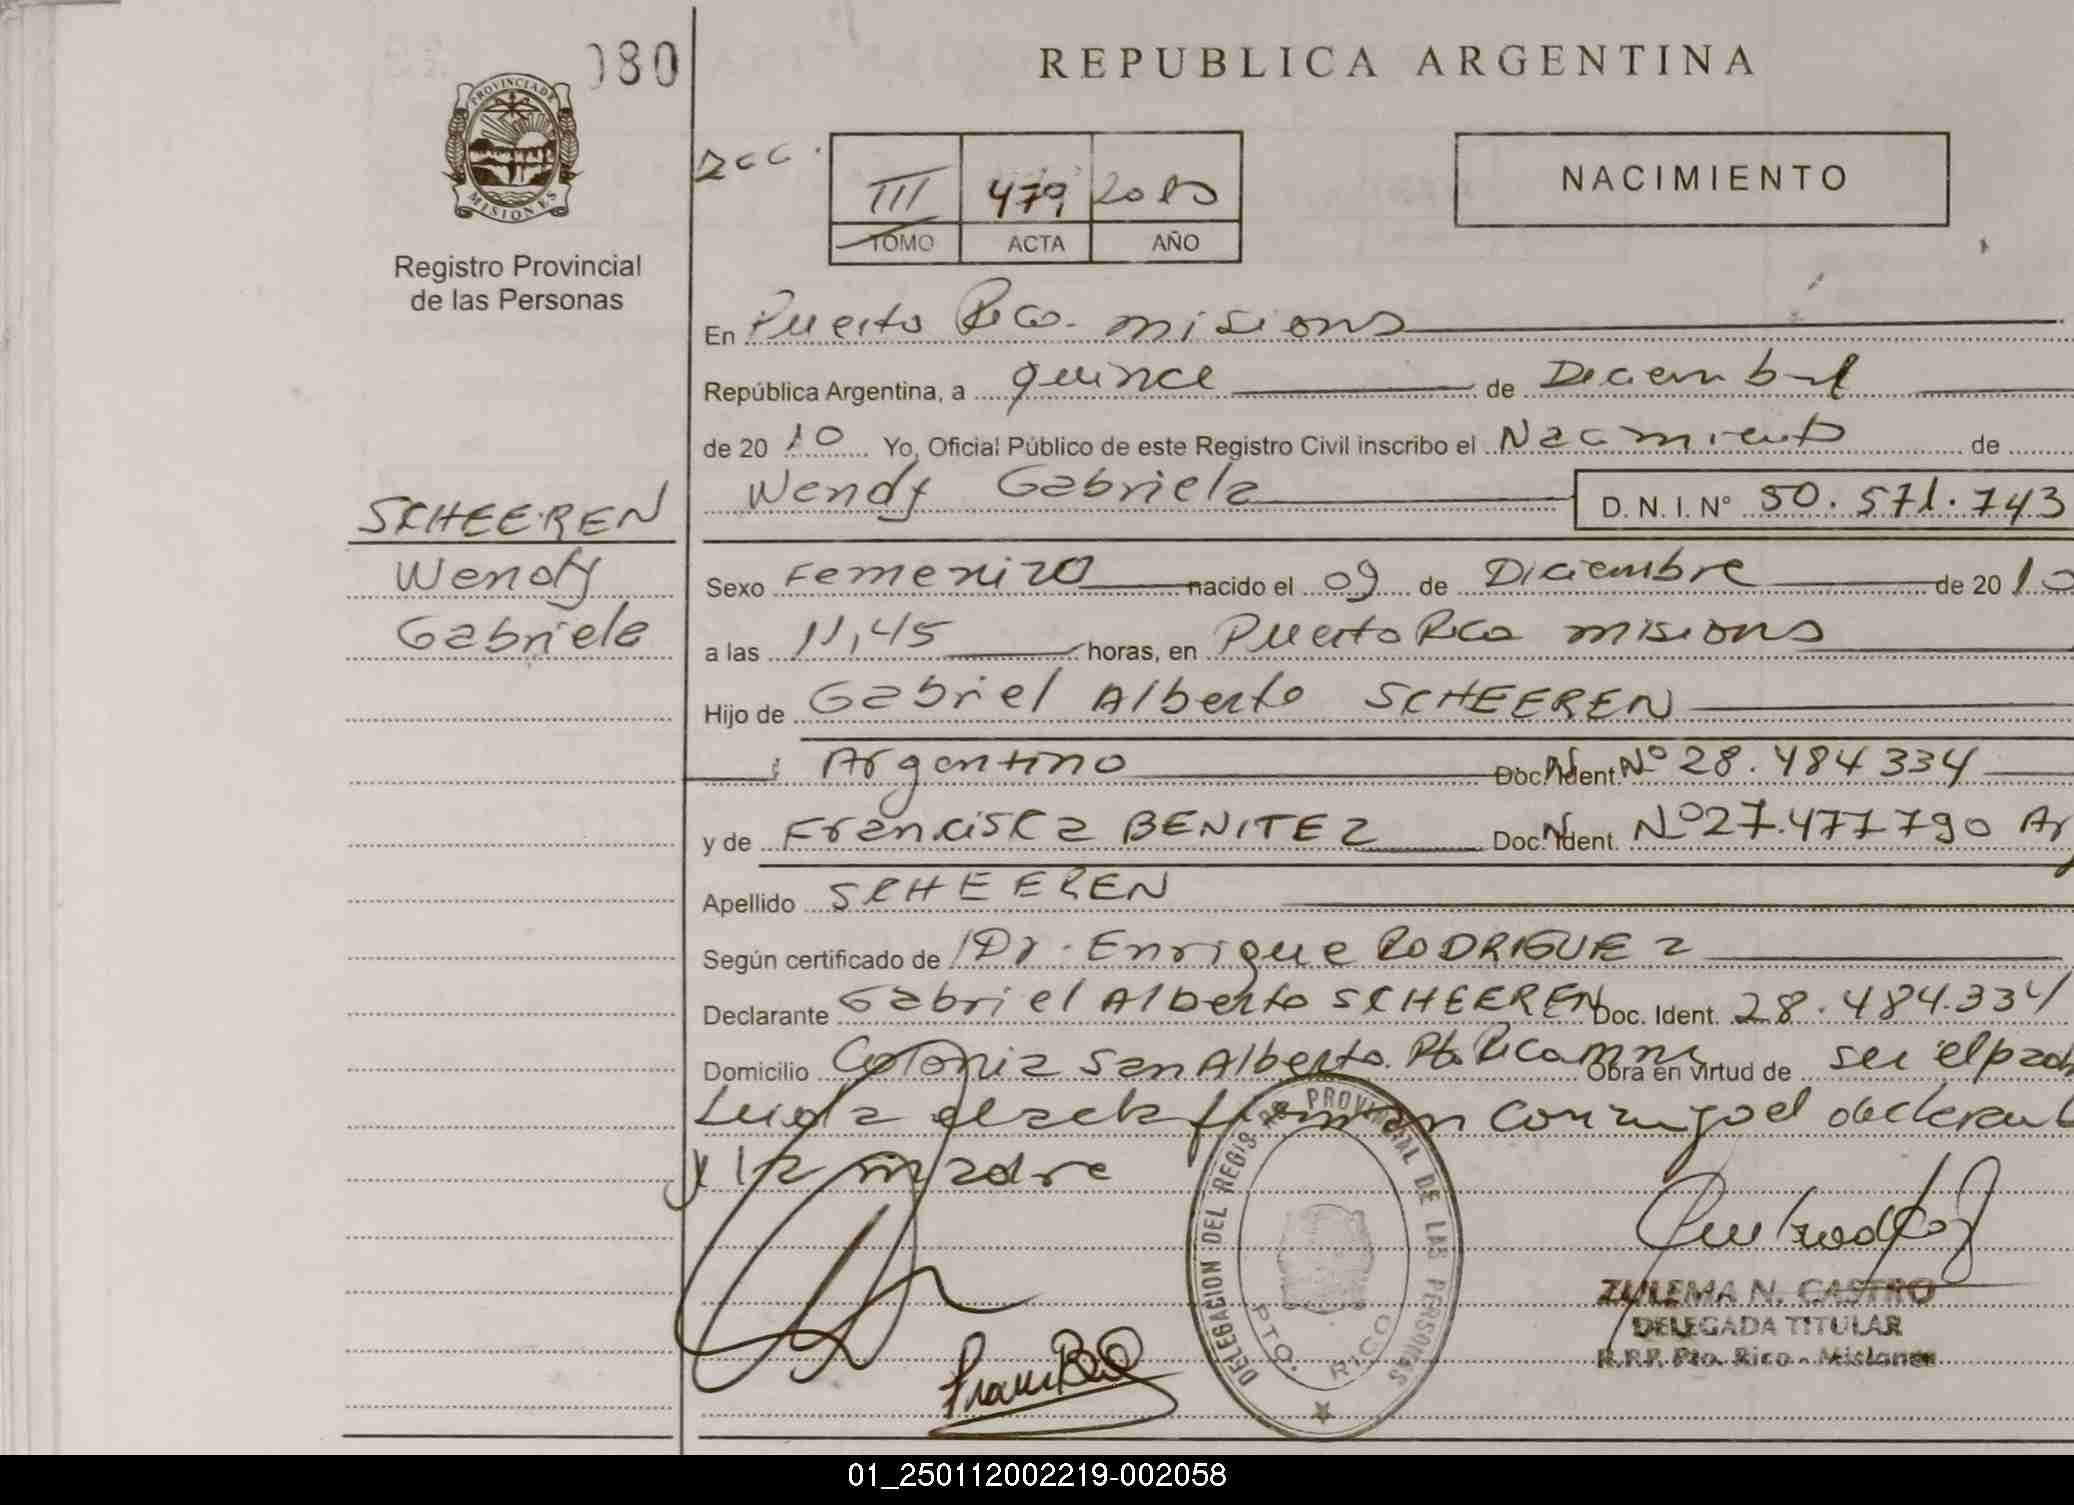 080
REPUBLICA ARGENTINA
PROVINCIA DE
MISIONES
Registro Provincial
de las Personas
III 479 2010
TOMO ACTA AÑO
NACIMIENTO
En Puerto Rico - misiones
República Argentina, a quince de Diciembre
de 20 10 Yo, Oficial Público de este Registro Civil inscribo el Nacimiento de
Wendy Gabriela D. N. I. N° 50.571.743
SCHEEREN
Wendy
Gabriela
Sexo Femenino nacido el 09 de Diciembre de 20 10
a las 11,45 horas, en Puerto Rico misiones
Hijo de Gabriel Alberto SCHEEREN
Argentino Doc. Ident. N° 28.484334
y de Francisca BENITEZ Doc. Ident. N° 27.477790
Apellido SCHEEREN
Según certificado de Dr. Enrique RODRIGUEZ
Declarante Gabriel Alberto SCHEEREN Doc. Ident. 28.484.334
Domicilio Colonia San Alberto. Pto Rico mnes Obra en virtud de ser el padre
Leida el acta firman conmigo el declarante
y la madre
DELEGACION DEL REGISTRO PROVINCIAL DE LAS PERSONAS
PTO. RICO
ZULEMA N. CASTRO
DELEGADA TITULAR
R.P.P. Pto. Rico - Misiones
01_250112002219-002058